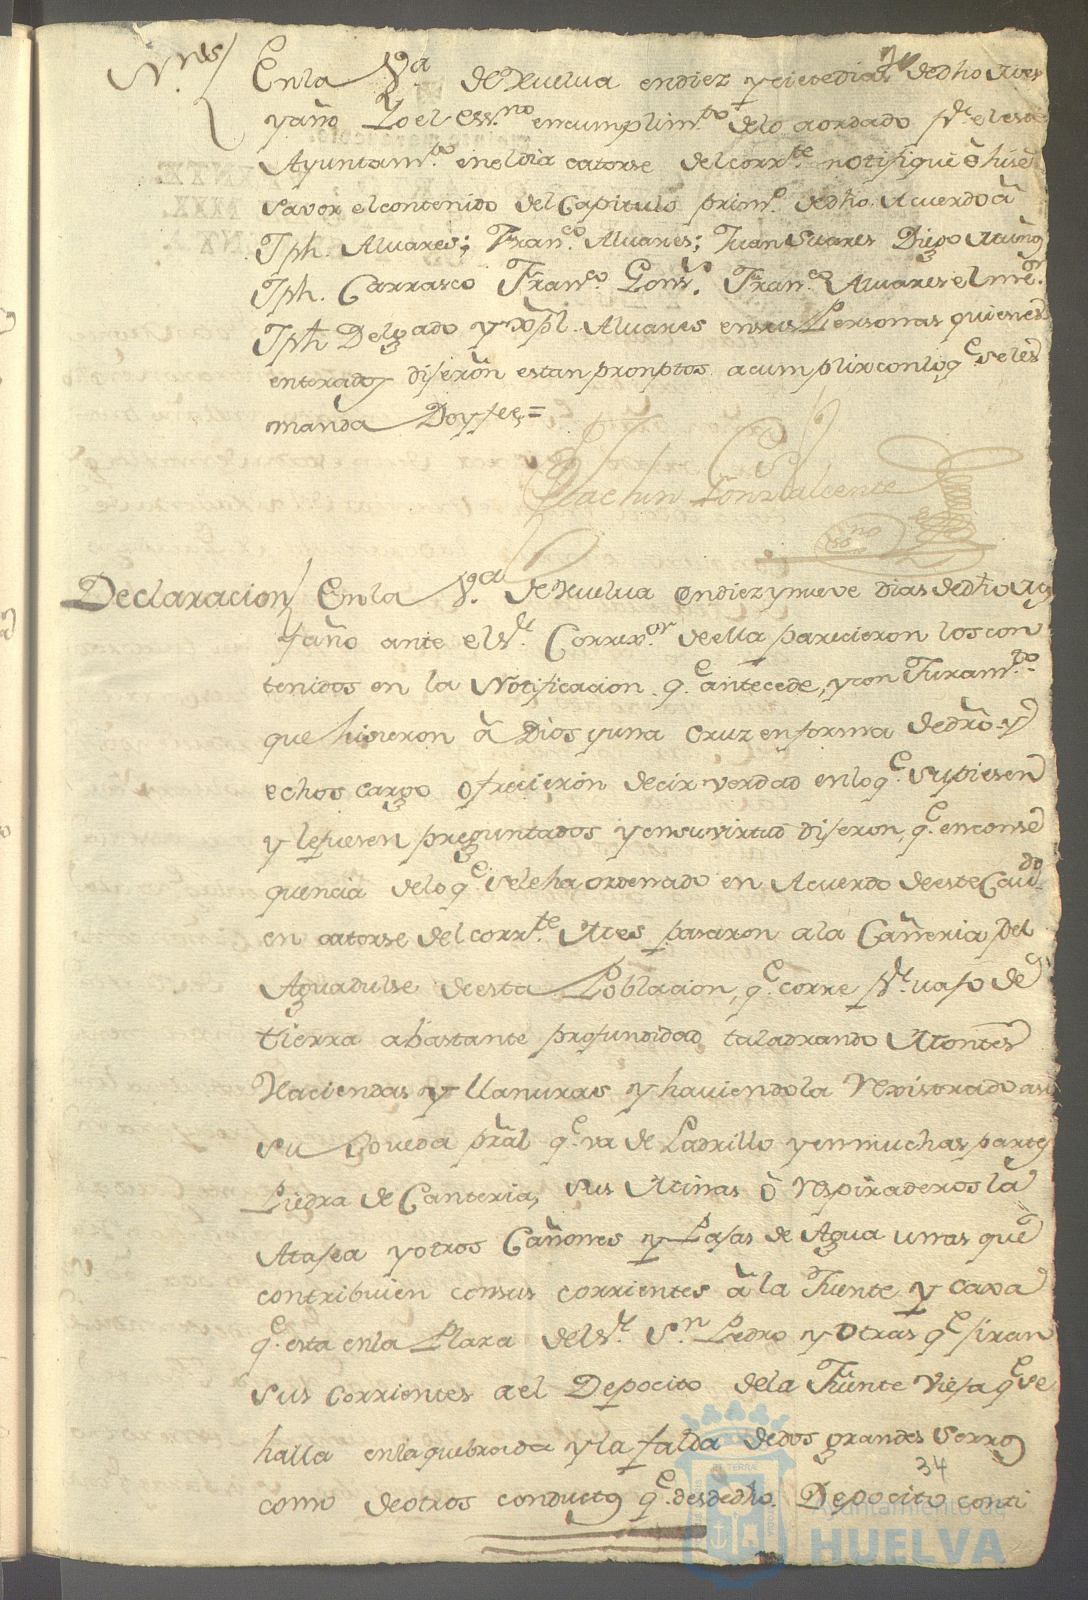 Nnes/ En la Va. de Huelva en diez y ciete dias de dho Mes
y año Yo el Essno. en cumplimto. de lo acordado pr. el este
Ayuntamto. en el dia catorse del corrte. notifiqué ê hise
saver el contenido del Capitulo primo. de dho Acuerdo â
Jph. Alvares; Franco. Alvares; Juan Suares Diego Muños
Jph. Carrasco Franco. Gonss. Franco. Alvares el mr.
Jph Delgado y Xpl. Alvares en sus Personas quienes
enterados dijeron estan promptos a cumplir con lo qe. se les
manda Doy fee=
Joachin Gonz
essno
Declaracion/ En la Va. de Huelva en diez y nueve dias de dho Mes
y año ante el Sr. Correxor. de ella parecieron los con
tenidos en la Notificacion qe. antecede, y con Juramto.
que hisieron â Dios y una Cruz en forma de dro. y
echos cargo ofrecieron decir verdad en lo qe. supiesen
y le fuesen preguntados y en su virtud dijeron, qe. en conse
quencia de lo qe. se le ha ordenado en Acuerdo de este Cavdo
en catorse del corrte. Mes pasaron a la Cañeria del
Agua dulse de esta Poblacion, qe. corre pr. vajo de
tierra a bastante profundidad taladrando Montes
Haciendas y llanuras y haviendola rexistrado asi
su Boveda pral qe. va de Ladrillo y en muchas partes
Piedra de Canteria, sus Minas ô respiraderos la
Atajea y otros Cañones y Lajas de Agua unas que
contribuien con sus corrientes â la Fuente y Caxa
qe. esta en la Plaza del Sr. Sn. Pedro y otras qe. jiran
sus corrientes a el Depocito de la Fuente Vieja qe. se
halla en la quebrada y la falda de dos grandes serros
como de otros conductos qe. desde dho. Depocito conti
34
Ayuntamiento de
HUELVA